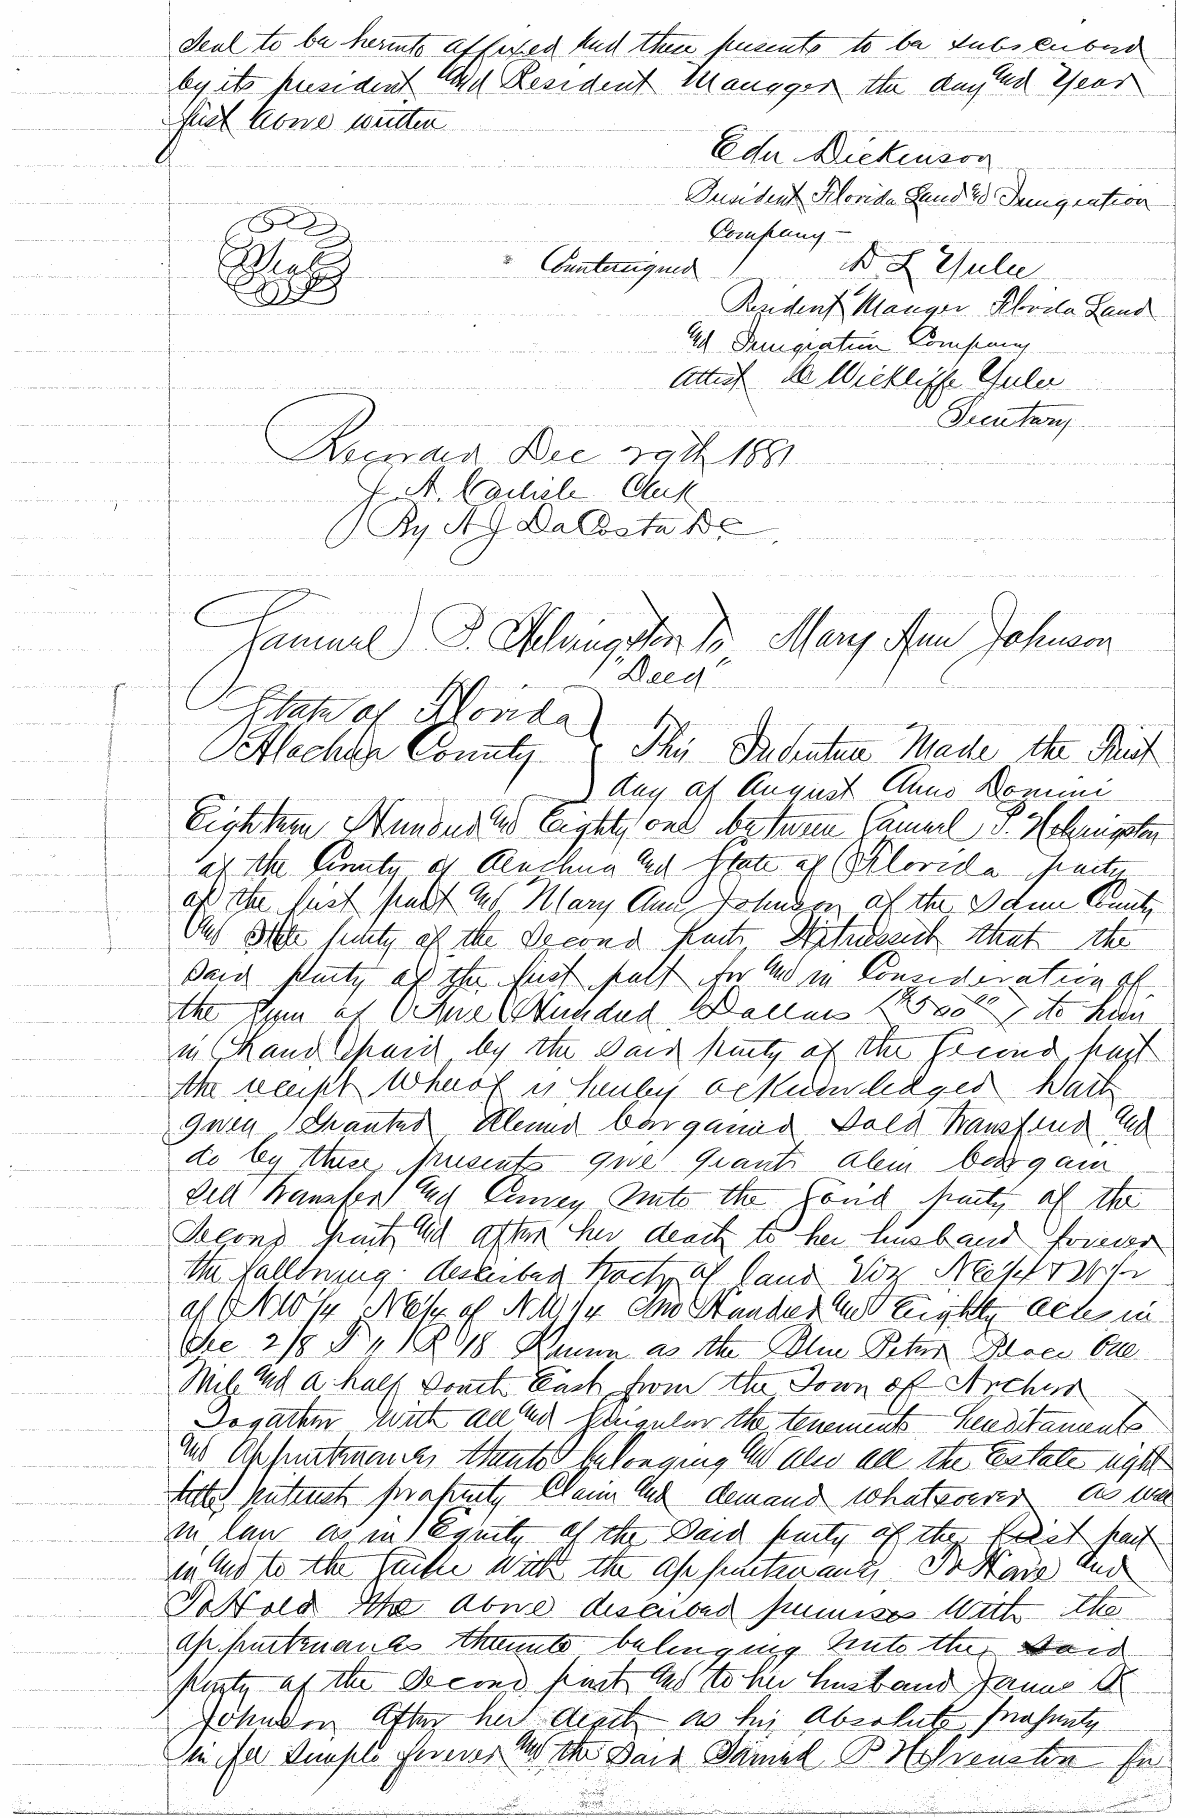 seal to be herunto affixed and these presents to be subscribed
by its president and Resident Manager the day and Year
first above written
Edn Dickenson
President Florida Land and Immigration
Company
Seal
Countersigned D L Yulee
Resident Manger Florida Land
and Immigration Company
Attest Wickliffe Yulee
Secretary
Recorded Dec 29th 1881
J. A. Carlisle Clerk
By A J DaCosta DC
Samuel P. Helvingston To Mary Ann Johnson
"Deed"
State of Florida
Alachua County } This Indenture Made the First
day of August Anno Domini
Eighteen Hundred and Eighty one between Samuel P. Helvingston
of the County of Alachua and State of Florida party
of the first part and Mary Ann Johnson of the Same County
and State party of the Second part, Witnesseth that the
said party of the first part for and in Consideration of
the Sum of Five Hundred Dollars ($500 00) to him
in hand paid by the said party of the Second part
the receipt whereof is hereby acknowledged hath
given Granted aliened bargained Sold transferred and
do by these presents give grant alien bargain
Sell transfer and Convey unto the said party of the
Second part and after her death to her husband forever
the following described tracts of land Viz NE 1/4 & W 1/2
of NW 1/4 NE 1/4 of NW 1/4 One Hundred and Eighty acres in
Sec 28 T 11 R 18 Known as the Blue Peter Place One
Mile and a half South East from the Town of Archer
Together with all and singular the tenements hereditaments
and appurtenances thereto belonging and also all the Estate right
title interest property Claim and demand whatsoever as well
in law as in Equity of the Said party of the first part
in and to the same with the appurtenances, To Have and
To Hold the above described premises With the
appurtenances thereunto belonging unto the said
party of the Second part and to her husband James
Johnson after her death as his absolute property
in fee simple forever and the said Samuel P Helvenston for